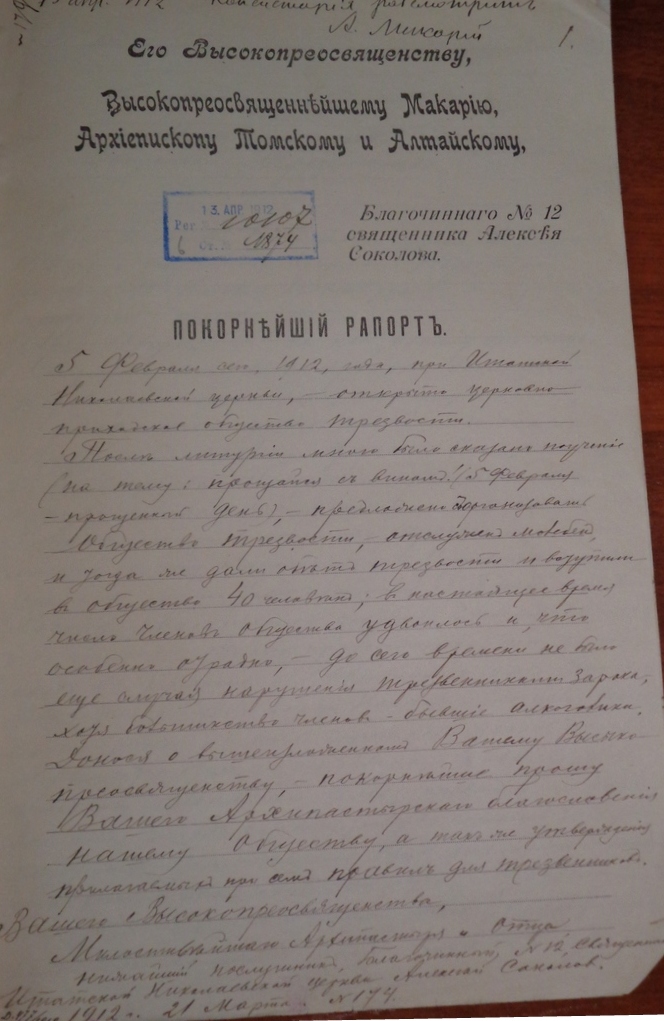 Консисторія разсмотритъ
А. Макарій
1.
Его Высокопреосвященству,
Высокопреосвященнѣйшему Макарію,
Архіепископу Томскому и Алтайскому,
13 АПР 1912
10107
1874
Благочиннаго № 12
священника Алексѣя
Соколова.
ПОКОРНѢЙШІЙ РАПОРТЪ.
5 Февраля сего 1912, года, при Итатской
Николаевской церкви, – открыто церковно
приходское общество трезвости.
Послѣ литургіи мною было сказано поученіе
(на тему: прощайся съ виномъ! (5 Февраля
– прощеный день), – предложено организовать
Общество трезвости, – отслуженъ молебен,
и тогда же дали обѣтъ трезвости и вступили
въ общество 40 человѣкъ; въ настоящее время
число членовъ общества удвоилось и, что
особенно отрадно, – до сего времени не было
еще случая нарушенія трезвенниками зарока,
хотя большинство членовъ – бывшіе алкоголики.
Донося о вышеизложенномъ Вашему Высоко
преосвященству, – покорнѣйше прошу
Вашего Архипастырскаго благословенія
нашему Обществу, а такъ же утвержденія
прилагаемыхъ при семъ правилъ для трезвенниковъ.
Вашего Высокопреосвященства,
Милостивѣйшаго Архипастыря и Отца
нижайшій послушникъ, Благочинный № 12, Священникъ
Итатской Николаевской церкви Алексей Соколовъ.
1912 г. 21 Марта. № 174.